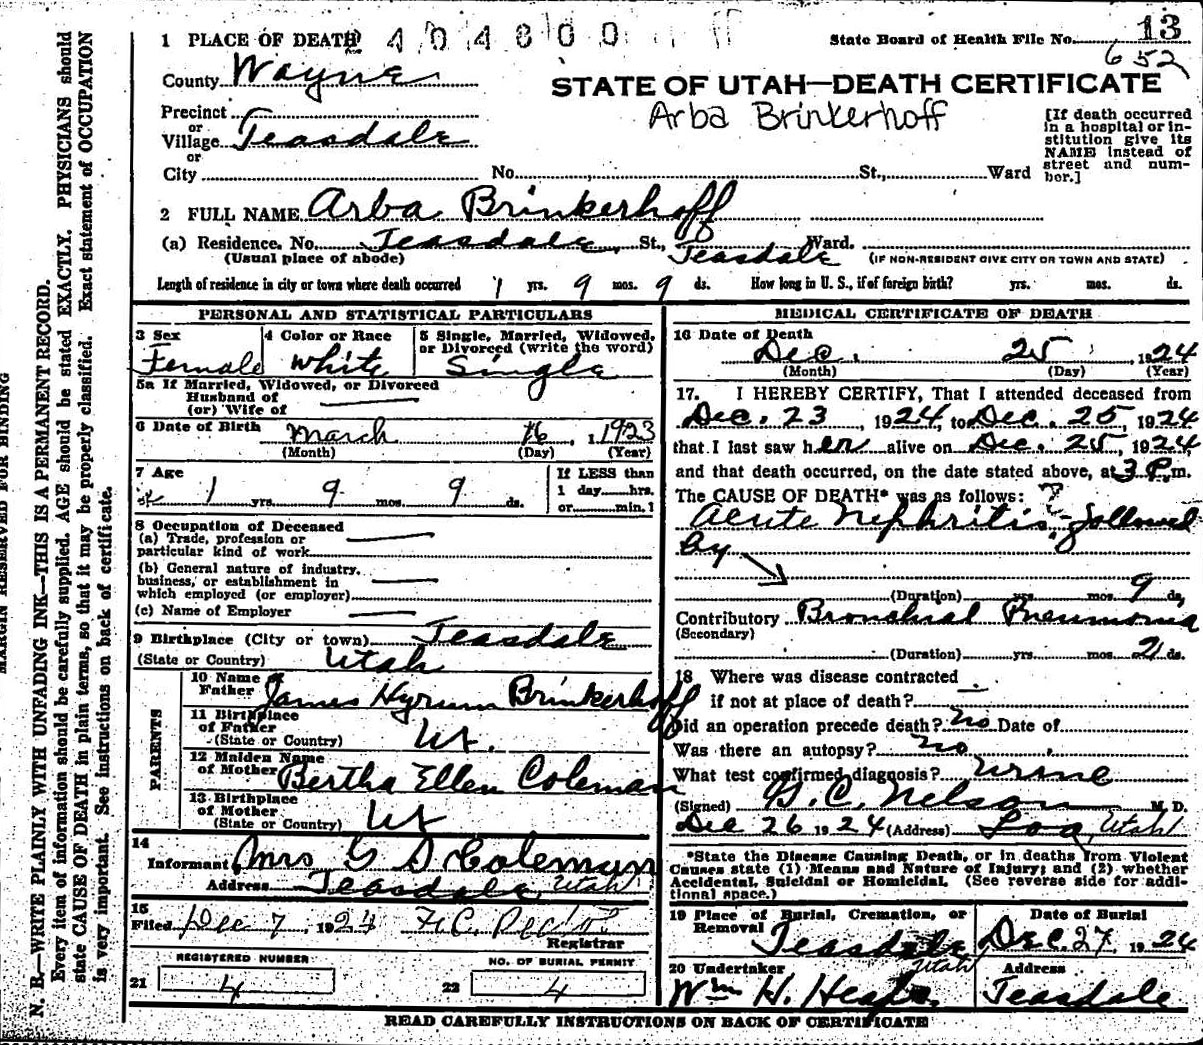 1 PLACE OF DEATH 2404800
State Board of Health File No. 13
652
County Wayne
STATE OF UTAH—DEATH CERTIFICATE
Arba Brinkerhoff
Precinct
or
Village Teasdale
or
City No. St., Ward
[If death occurred
in a hospital or in-
stitution give its
NAME instead of
street and num-
ber.]
2 FULL NAME Arba Brinkerhoff
(a) Residence. No. Teasdale, St., Teasdale Ward.
(Usual place of abode) (IF NON-RESIDENT GIVE CITY OR TOWN AND STATE)
Length of residence in city or town where death occurred 1 yrs. 9 mos. 9 ds. How long in U. S., if of foreign birth? yrs. mos. ds.
PERSONAL AND STATISTICAL PARTICULARS
3 Sex
Female
4 Color or Race
White
5 Single, Married, Widowed,
or Divorced (write the word)
Single
5a If Married, Widowed, or Divorced
Husband of
(or) Wife of
6 Date of Birth March 16, 1923
(Month) (Day) (Year)
7 Age
1 yrs. 9 mos. 9 ds.
If LESS than
1 day......hrs.
or......min.?
8 Occupation of Deceased
(a) Trade, profession or
particular kind of work
(b) General nature of industry,
business, or establishment in
which employed (or employer)
(c) Name of Employer
9 Birthplace (City or town) Teasdale
(State or Country) Utah
PARENTS
10 Name of
Father James Hyrum Brinkerhoff
11 Birthplace
of Father
(State or Country) Ut.
12 Maiden Name
of Mother Bertha Ellen Coleman
13 Birthplace
of Mother
(State or Country) Ut
14
Informant Mrs G D Coleman
Address Teasdale, Utah
15
Filed Dec 7 1924 H.C.
Registrar
REGISTERED NUMBER
21 4
NO. OF BURIAL PERMIT
22 4
MEDICAL CERTIFICATE OF DEATH
16 Date of Death
Dec. 25, 1924
(Month) (Day) (Year)
17. I HEREBY CERTIFY, That I attended deceased from
Dec. 23, 1924, to Dec. 25, 1924
that I last saw her alive on Dec. 25, 1924,
and that death occurred, on the date stated above, at 3 P.m.
The CAUSE OF DEATH* was as follows: ?
Acute Nephritis, followed
by
(Duration) yrs. mos. 9 ds.
Contributory Bronchial Pneumonia
(Secondary)
(Duration) yrs. mos. 2 ds.
18 Where was disease contracted
if not at place of death?
Did an operation precede death? No Date of
Was there an autopsy? No
What test confirmed diagnosis? Urine
(Signed) G. C. Nelson M. D.
Dec 26 1924 (Address) Loa, Utah
*State the Disease Causing Death, or in deaths from Violent
Causes state (1) Means and Nature of Injury; and (2) whether
Accidental, Suicidal or Homicidal. (See reverse side for addi-
tional space.)
19 Place of Burial, Cremation, or
Removal Teasdale Utah
Date of Burial
Dec. 27, 1924
20 Undertaker
Wm H.
Address
Teasdale
READ CAREFULLY INSTRUCTIONS ON BACK OF CERTIFICATE
MARGIN RESERVED FOR BINDING
N. B.—WRITE PLAINLY WITH UNFADING INK—THIS IS A PERMANENT RECORD.
Every item of information should be carefully supplied. AGE should be stated EXACTLY. PHYSICIANS should
state CAUSE OF DEATH in plain terms, so that it may be properly classified. Exact statement of OCCUPATION
is very important. See instructions on back of certificate.